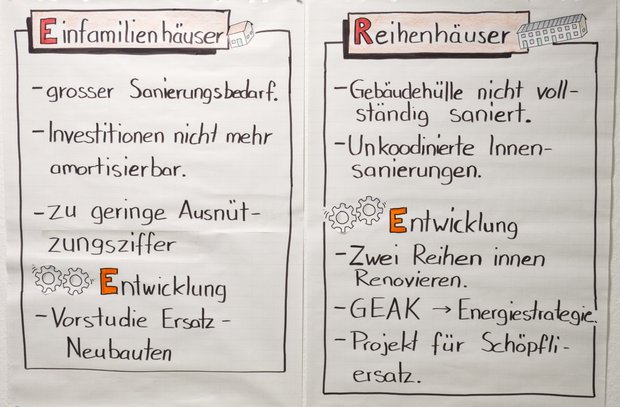 Einfamilienhäuser
- grosser Sanierungsbedarf.
- Investitionen nicht mehr
amortisierbar.
- zu geringe Ausnüt-
zungsziffer
Entwicklung
- Vorstudie Ersatz-
Neubauten
Reihenhäuser
- Gebäudehülle nicht voll-
ständig saniert.
- Unkoodinierte Innen-
sanierungen.
Entwicklung
- Zwei Reihen innen
Renovieren.
- GEAK → Energiestrategie.
- Projekt für Schöpfli-
ersatz.